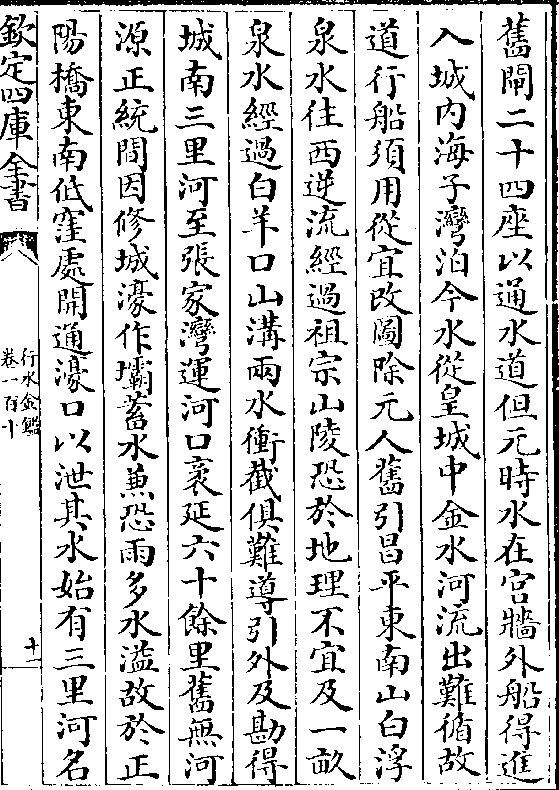 舊閘二十四座以通水道但元時水在宮牆外船得進
入城内海子灣泊今水從皇城中金水河流出難循故
道行船須用從宜改圖除元人舊引昌平東南山白浮
泉水往西逆流經過祖宗山陵恐於地理不宜及一畝
泉水經過白羊口山溝兩水衝截俱難導引外及勘得
城南三里河至張家灣運河口袤延六十餘里舊無河
源正統間因修城濠作壩蓄水兼恐雨多水溢故於正
陽橋東南低窪處開通濠口以泄其水始有三里河名
欽定四庫全書
行水金鑑
卷一百十
十一